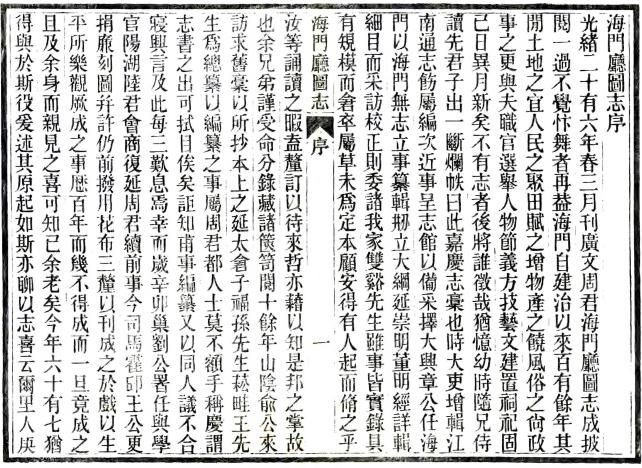 海門廳圖志序
光緒二十有六年春三月刊廣文周君海門廳圖志成披
閱一過不覺忭舞者再蓋海門自建治以來百有餘年其
開土地之宜人民之聚田賦之增物產之饒風俗之尚政
事之更與夫職官選舉人物節義方技藝文建置祠祀固
已日異月新矣不有志者後將誰徵哉猶憶幼時隨兄侍
讀先君子出一斷爛帙曰此嘉慶志稾也時大吏增輯江
南通志飭屬編次近事呈志館以備采擇大興章公任海
門以海門無志立事纂輯剏立大綱延崇明董明經詳輯
細目而采訪校正則委諸我家雙谿先生雖事皆實錄具
有規模而倉卒屬草未爲定本顧安得有人起而脩之乎
海門廳圖志
序
一
汝等誦讀之暇盍釐訂以待來哲亦藉以知是邦之掌故
也余兄弟謹受命分錄藏諸篋笥閱十餘年山陰俞公來
訪求舊稾以所抄本上之延太倉子福孫先生菘畦王先
生爲總纂以編纂之事屬周君都人士莫不額手稱慶謂
志書之出可拭目俟矣詎知甫事編纂又以同人議不合
寢興言及此每三歎息焉幸而歲辛卯巢劉公署任與學
官陽湖陸君會商復延周君續前事今司馬霍邱王公更
捐廉刻圖幷許仍前撥用花布三釐以刊成之於戲以生
平所樂觀厥成之事歷百年而幾不得成而一旦竟成之
且及余身而親見之喜可知已余老矣今年六十有七猶
得與於斯役爰述其原起如斯亦聊以志喜云爾里人